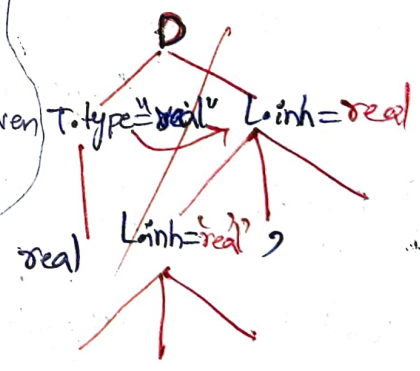 D
ven T.type="real" L.inh=real
real L.inh="real" ,